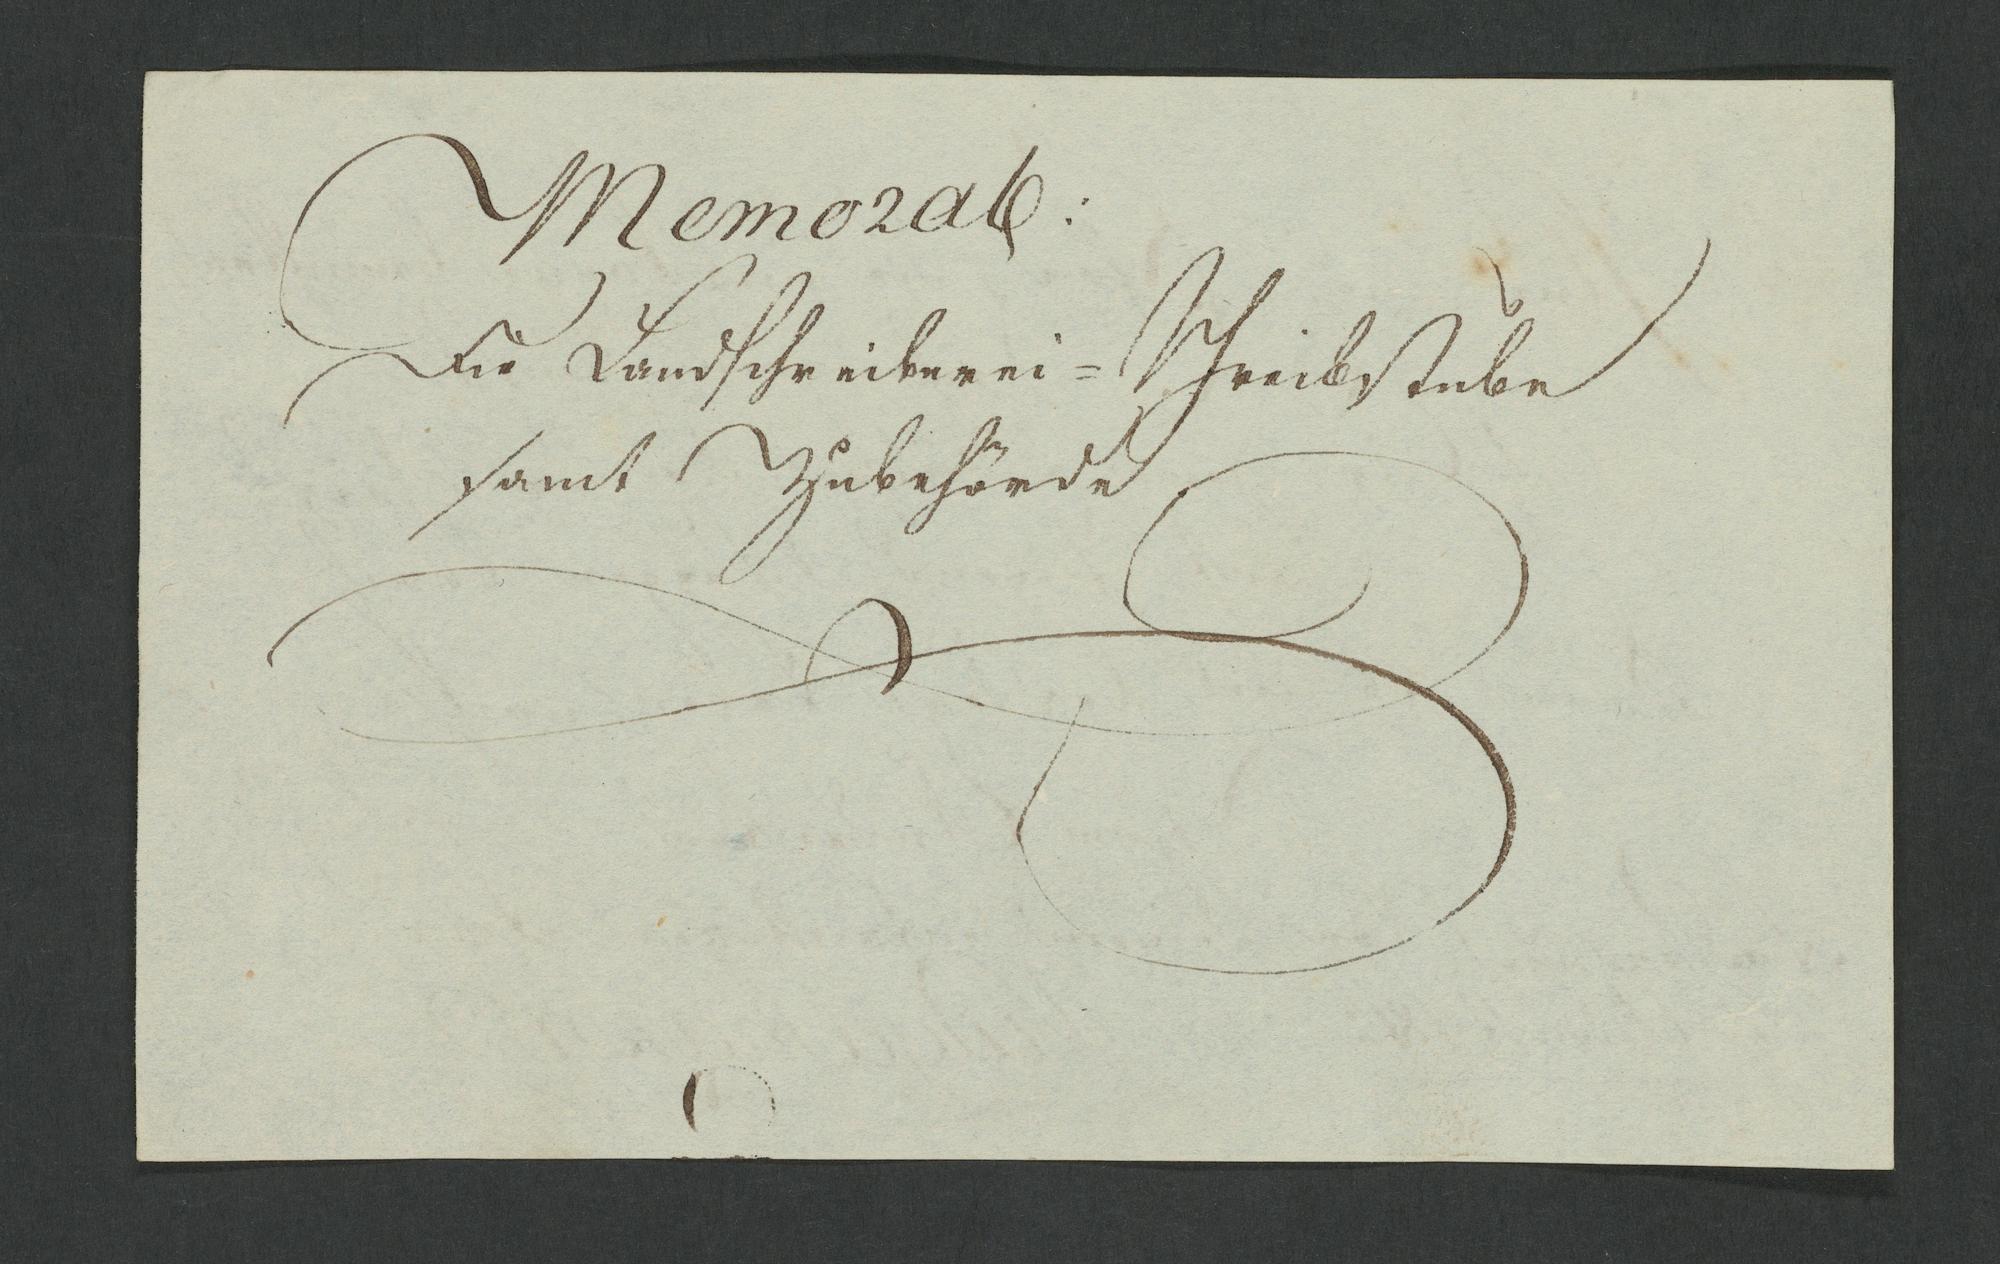 Memorab:
Die Landschreiberei=Schreibstube
samt Zubehörde